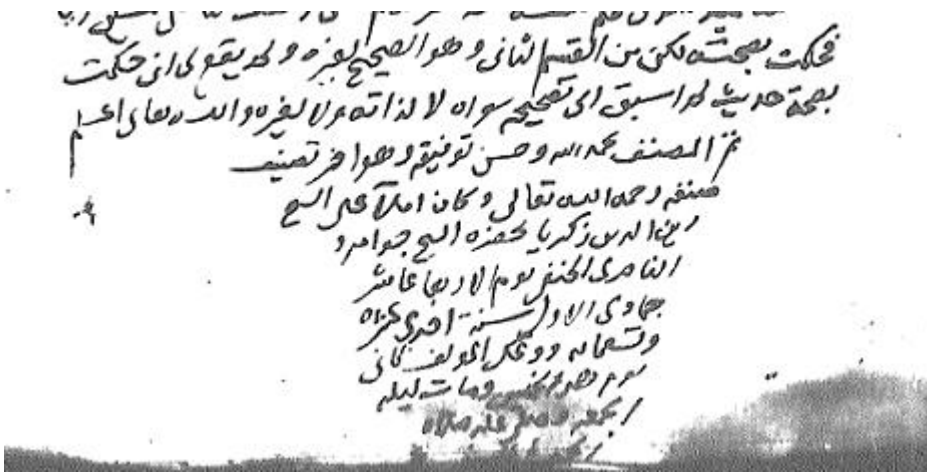 فحكمت بصحته لكن من القسم الثاني وهو الصحيح لغيره ولم يقع لي اني حكمت
بصحة حديث لم اسبق الى تصحيحه سواه لا لذاته ولا لغيره والله تعالى اعلم
تم المصنف بحمد الله وحسن توفيقه وهو اخر تصنيف
صنفه رحمه الله تعالى وكان املاه على الشيخ
زين الدين زكريا بحضرة الشيخ جوامرد
الناصري الحنفي يوم الاربعا عاشر
جمادى الاولى سنة احدى عشرة
وتسعمائة ووعك المولف ثاني
يوم وهو الخميس ومات ليلة
الجمعة وصلي عليه صلاة